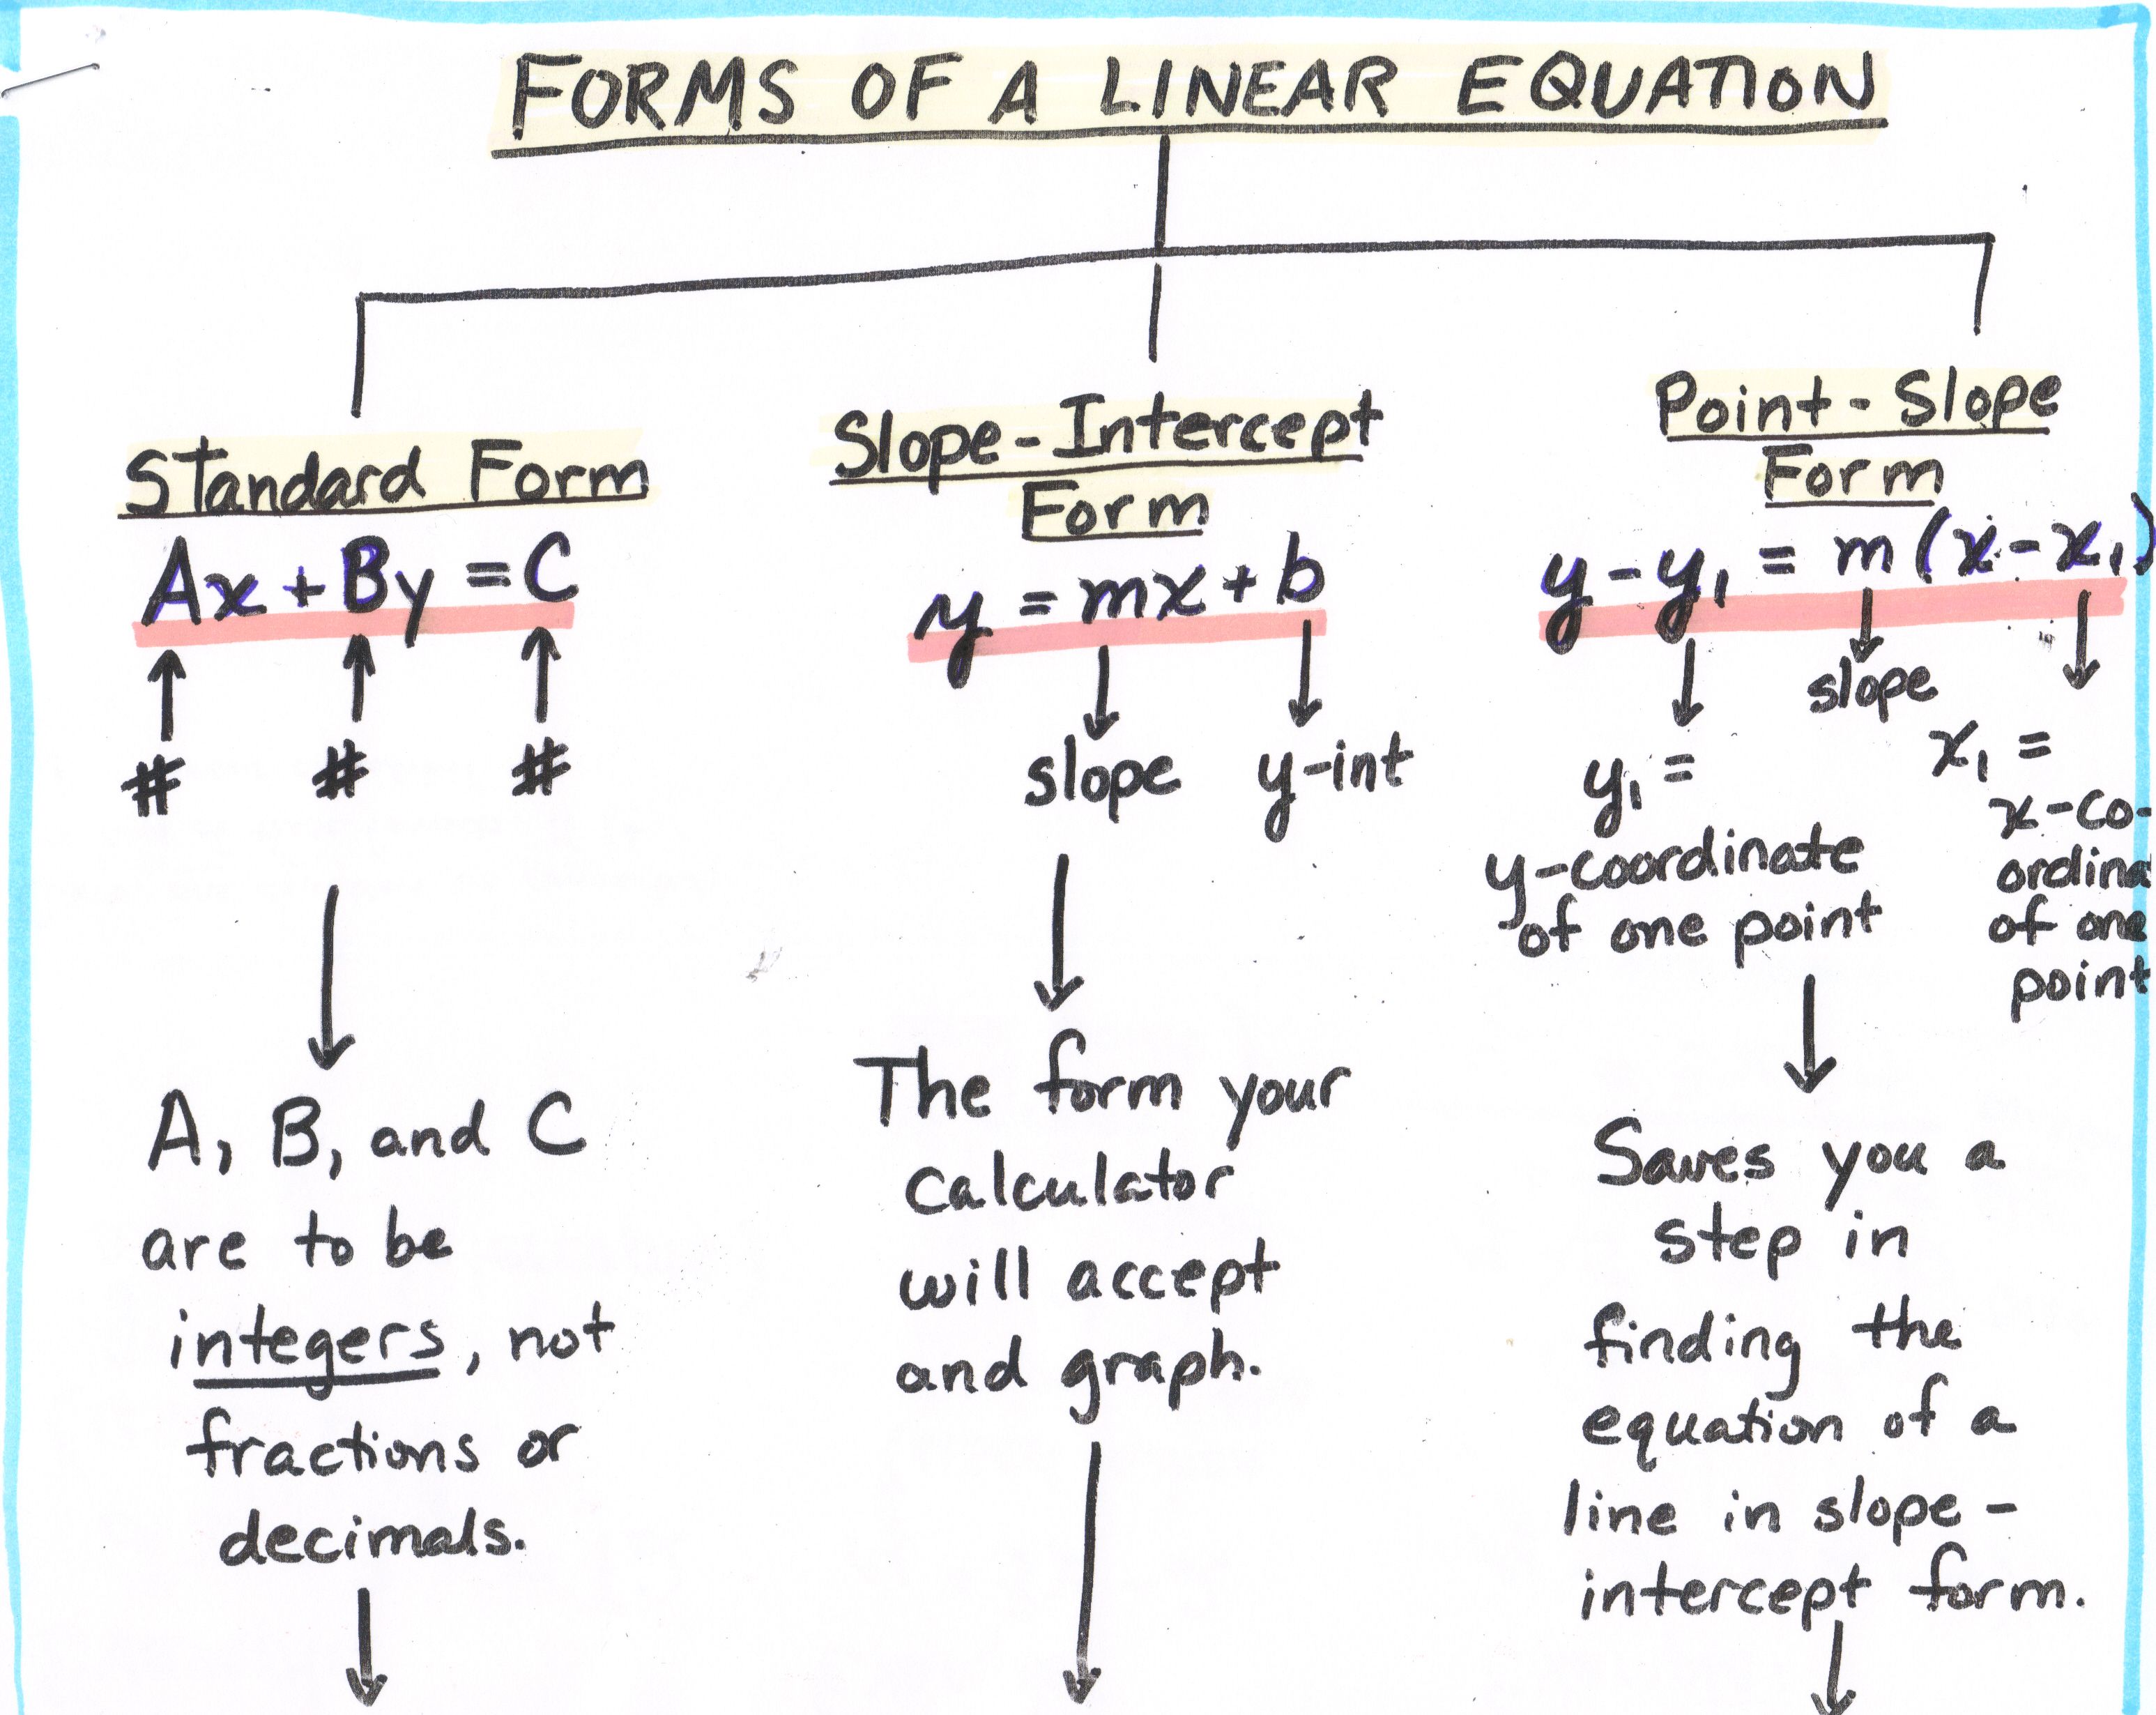 FORMS OF A LINEAR EQUATION
Standard Form
Ax + By = C
#
#
#
A, B, and C
are to be
integers, not
fractions or
decimals.
Slope-Intercept
Form
y = mx + b
slope
y-int
The form your
calculator
will accept
and graph.
Point-Slope
Form
y - y₁ = m(x - x₁)
slope
y₁ =
y-coordinate
of one point
x₁ =
x-co-
ordina
of one
point
Saves you a
step in
finding the
equation of a
line in slope-
intercept form.